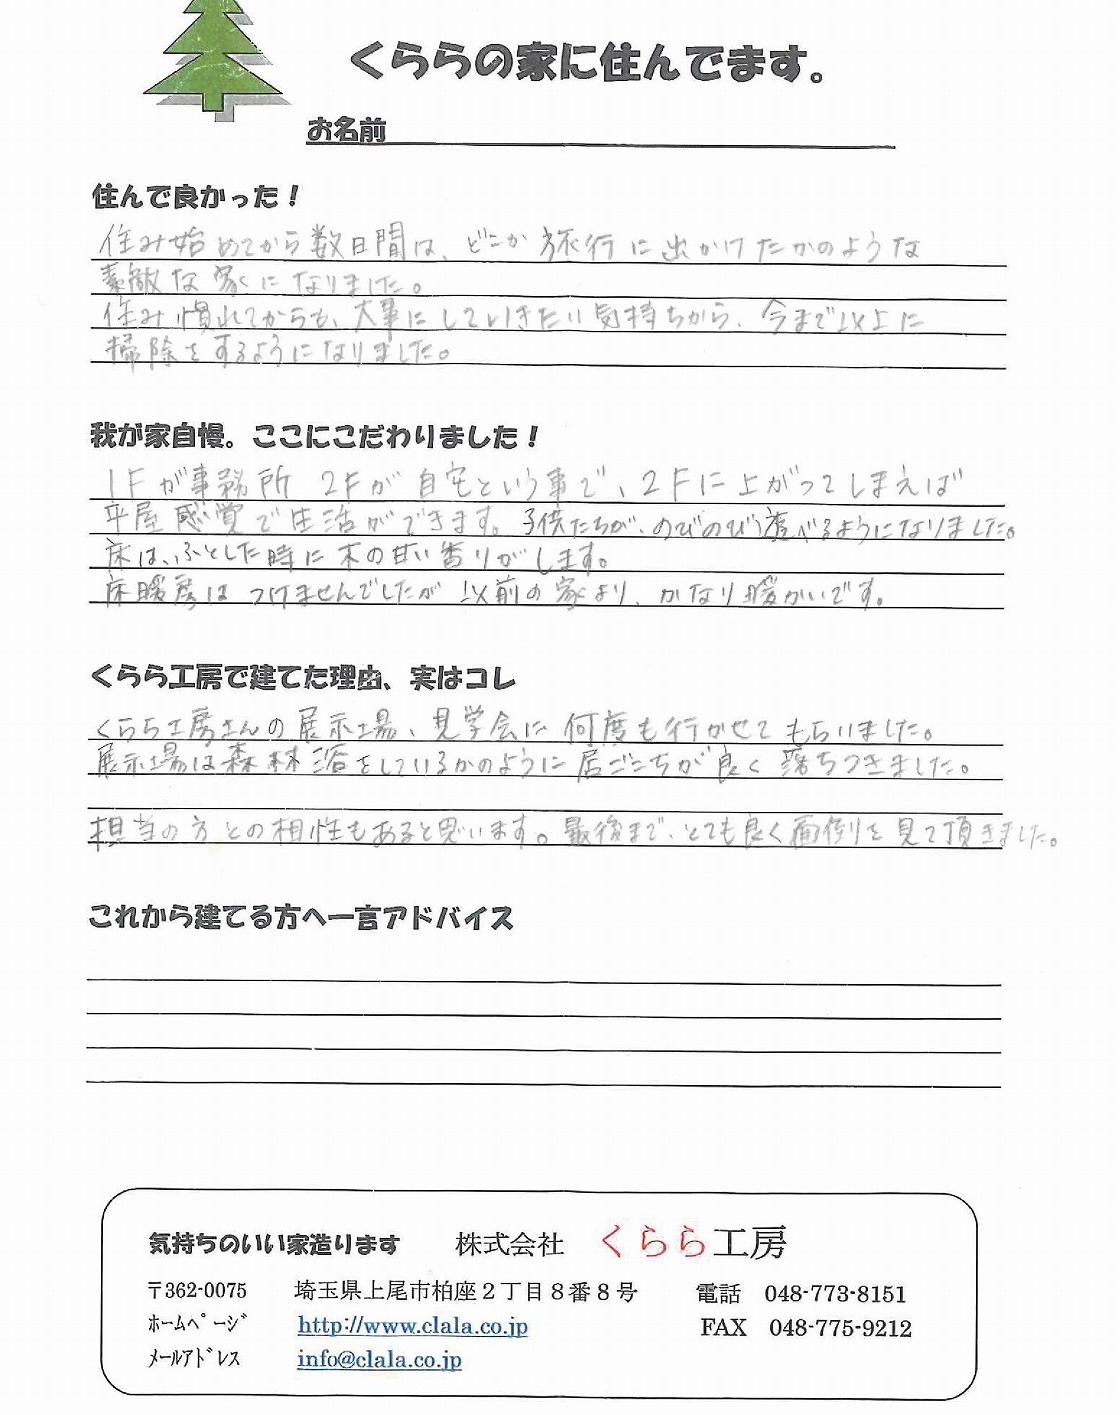 くららの家に住んでます。
お名前
住んで良かった！
住み始めてから数日間は、どこか旅行に出かけたかのような
素敵な家になりました。
住み慣れてからも、大事にしていきたい気持ちから、今まで以上に
掃除をするようになりました。
我が家自慢。ここにこだわりました！
1Fが事務所 2Fが自宅という事で、2Fに上がってしまえば
平屋感覚で生活ができます。子供たちが、のびのび遊べるようになりました。
床は、ふとした時に木の甘い香りがします。
床暖房はつけませんでしたが以前の家より、かなり暖かいです。
くらら工房で建てた理由、実はコレ
くらら工房さんの展示場、見学会に何度も行かせてもらいました。
展示場は森林浴をしているかのように居ごこちが良く落ちつきました。
担当の方との相性もあると思います。最後まで、とても良く面倒を見て頂きました。
これから建てる方へ一言アドバイス
気持ちのいい家造ります 株式会社 くらら工房
〒362-0075 埼玉県上尾市柏座２丁目８番８号 電話 048-773-8151
ﾎｰﾑﾍﾟｰｼﾞ http://www.clala.co.jp FAX 048-775-9212
ﾒｰﾙｱﾄﾞﾚｽ info@clala.co.jp